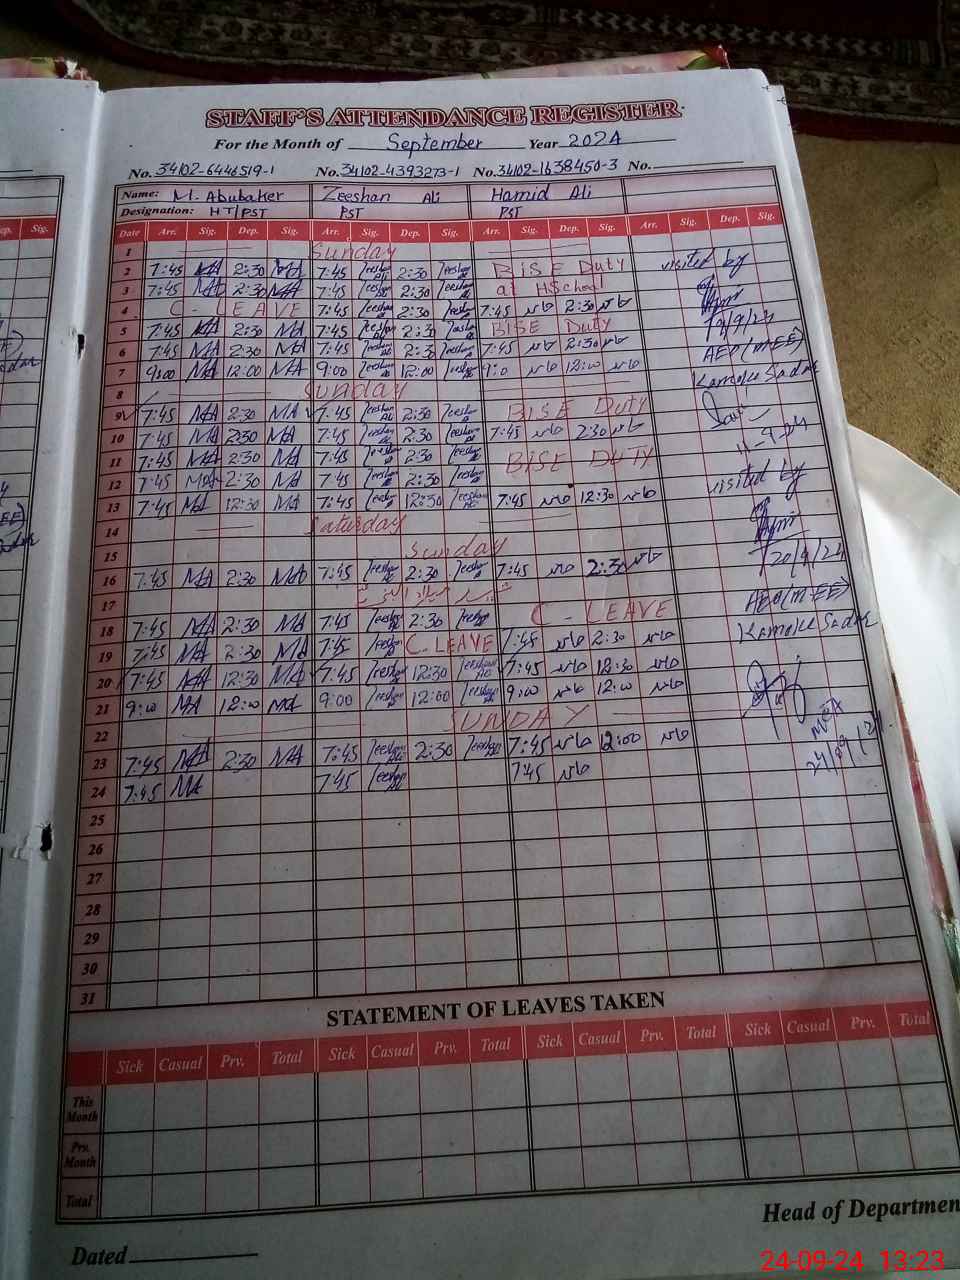 STAFF'S ATTENDANCE REGISTER
For the Month of September Year 2024
No. 34102-6446519-1 No. 34102-4393273-1 No. 34102-1638450-3 No.
Name: M. Abubaker Zeeshan Ali Hamid Ali
Designation: HT/PST PST PST
Date Arr. Sig. Dep. Sig. Arr. Sig. Dep. Sig. Arr. Sig. Dep. Sig. Arr. Sig. Dep. Sig.
1 Sunday
2 7:45 MA 2:30 MA 7:45 Zeeshan Ali 2:30 Zeeshan Ali BISE Duty visited by
3 7:45 MA 2:30 MA 7:45 Zeeshan Ali 2:30 Zeeshan at HSchool
4 C. LEAVE 7:45 Zeeshan Ali 2:30 Zeeshan 7:45 2:30
5 7:45 MA 2:30 MA 7:45 Zeeshan Ali 2:30 Zeeshan BISE Duty /9/24
6 7:45 MA 2:30 MA 7:45 Zeeshan Ali 2:30 Zeeshan 7:45 2:30 AEO (MEE)
7 9:00 MA 12:00 MA 9:00 Zeeshan Ali 12:00 Zeeshan 9:00 12:00 Kamoke Sadar
8 Sunday
9 7:45 MA 2:30 MA 7:45 Zeeshan Ali 2:30 Zeeshan BISE Duty
10 7:45 MA 2:30 MA 7:45 Zeeshan Ali 2:30 Zeeshan 7:45 2:30 11-9-24
11 7:45 MA 2:30 MA 7:45 Zeeshan Ali 2:30 Zeeshan BISE DUTY
12 7:45 MA 2:30 MA 7:45 Zeeshan 2:30 Zeeshan visited by
13 7:45 MA 12:30 MA 7:45 Zeeshan 12:30 Zeeshan 7:45 12:30
14 Saturday
15 Sunday 20/9/24
16 7:45 MA 2:30 MA 7:45 Zeeshan Ali 2:30 Zeeshan 7:45 2:30
17 AEO (MEE)
18 7:45 MA 2:30 MA 7:45 Zeeshan 2:30 Zeeshan C. LEAVE Kamoke Sadar
19 7:45 MA 2:30 MA 7:45 Zeeshan C. LEAVE 7:45 2:30
20 7:45 MA 12:30 MA 7:45 Zeeshan 12:30 Zeeshan Ali 7:45 12:30
21 9:00 MA 12:00 MA 9:00 Zeeshan Ali 12:00 Zeeshan Ali 9:00 12:00
22 SUNDAY MEA
23 7:45 MA 2:30 MA 7:45 Zeeshan Ali 2:30 Zeeshan 7:45 12:00 24/09/24
24 7:45 MA 7:45 Zeeshan 7:45
25
26
27
28
29
30
31
STATEMENT OF LEAVES TAKEN
Sick Casual Prv. Total Sick Casual Prv. Total Sick Casual Prv. Total Sick Casual Prv. Total
This Month
Prv. Month
Total
Head of Departmen
Dated
24-09-24 13:23